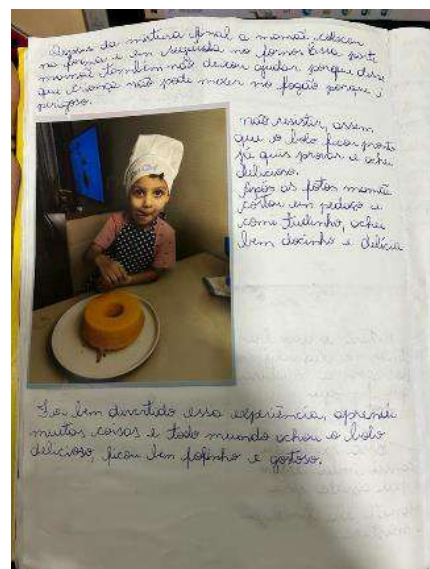 Depois da mistura final a mamãe colocou
na forma e em seguida no forno. Essa parte
mamãe também não deixou ajudar, porque disse
que criança não pode mexer no fogão porque é
perigoso.
não resisti, assim
que o bolo ficou pronto
já quis provar e achei
delicioso.
Após as fotos mamãe
cortou um pedaço e
comi tudinho, achei
bem docinho e delícia
Foi bem divertido essa experiência, aprendi
muitas coisas e todo mundo achou o bolo
delicioso, ficou bem fofinho e gostoso.